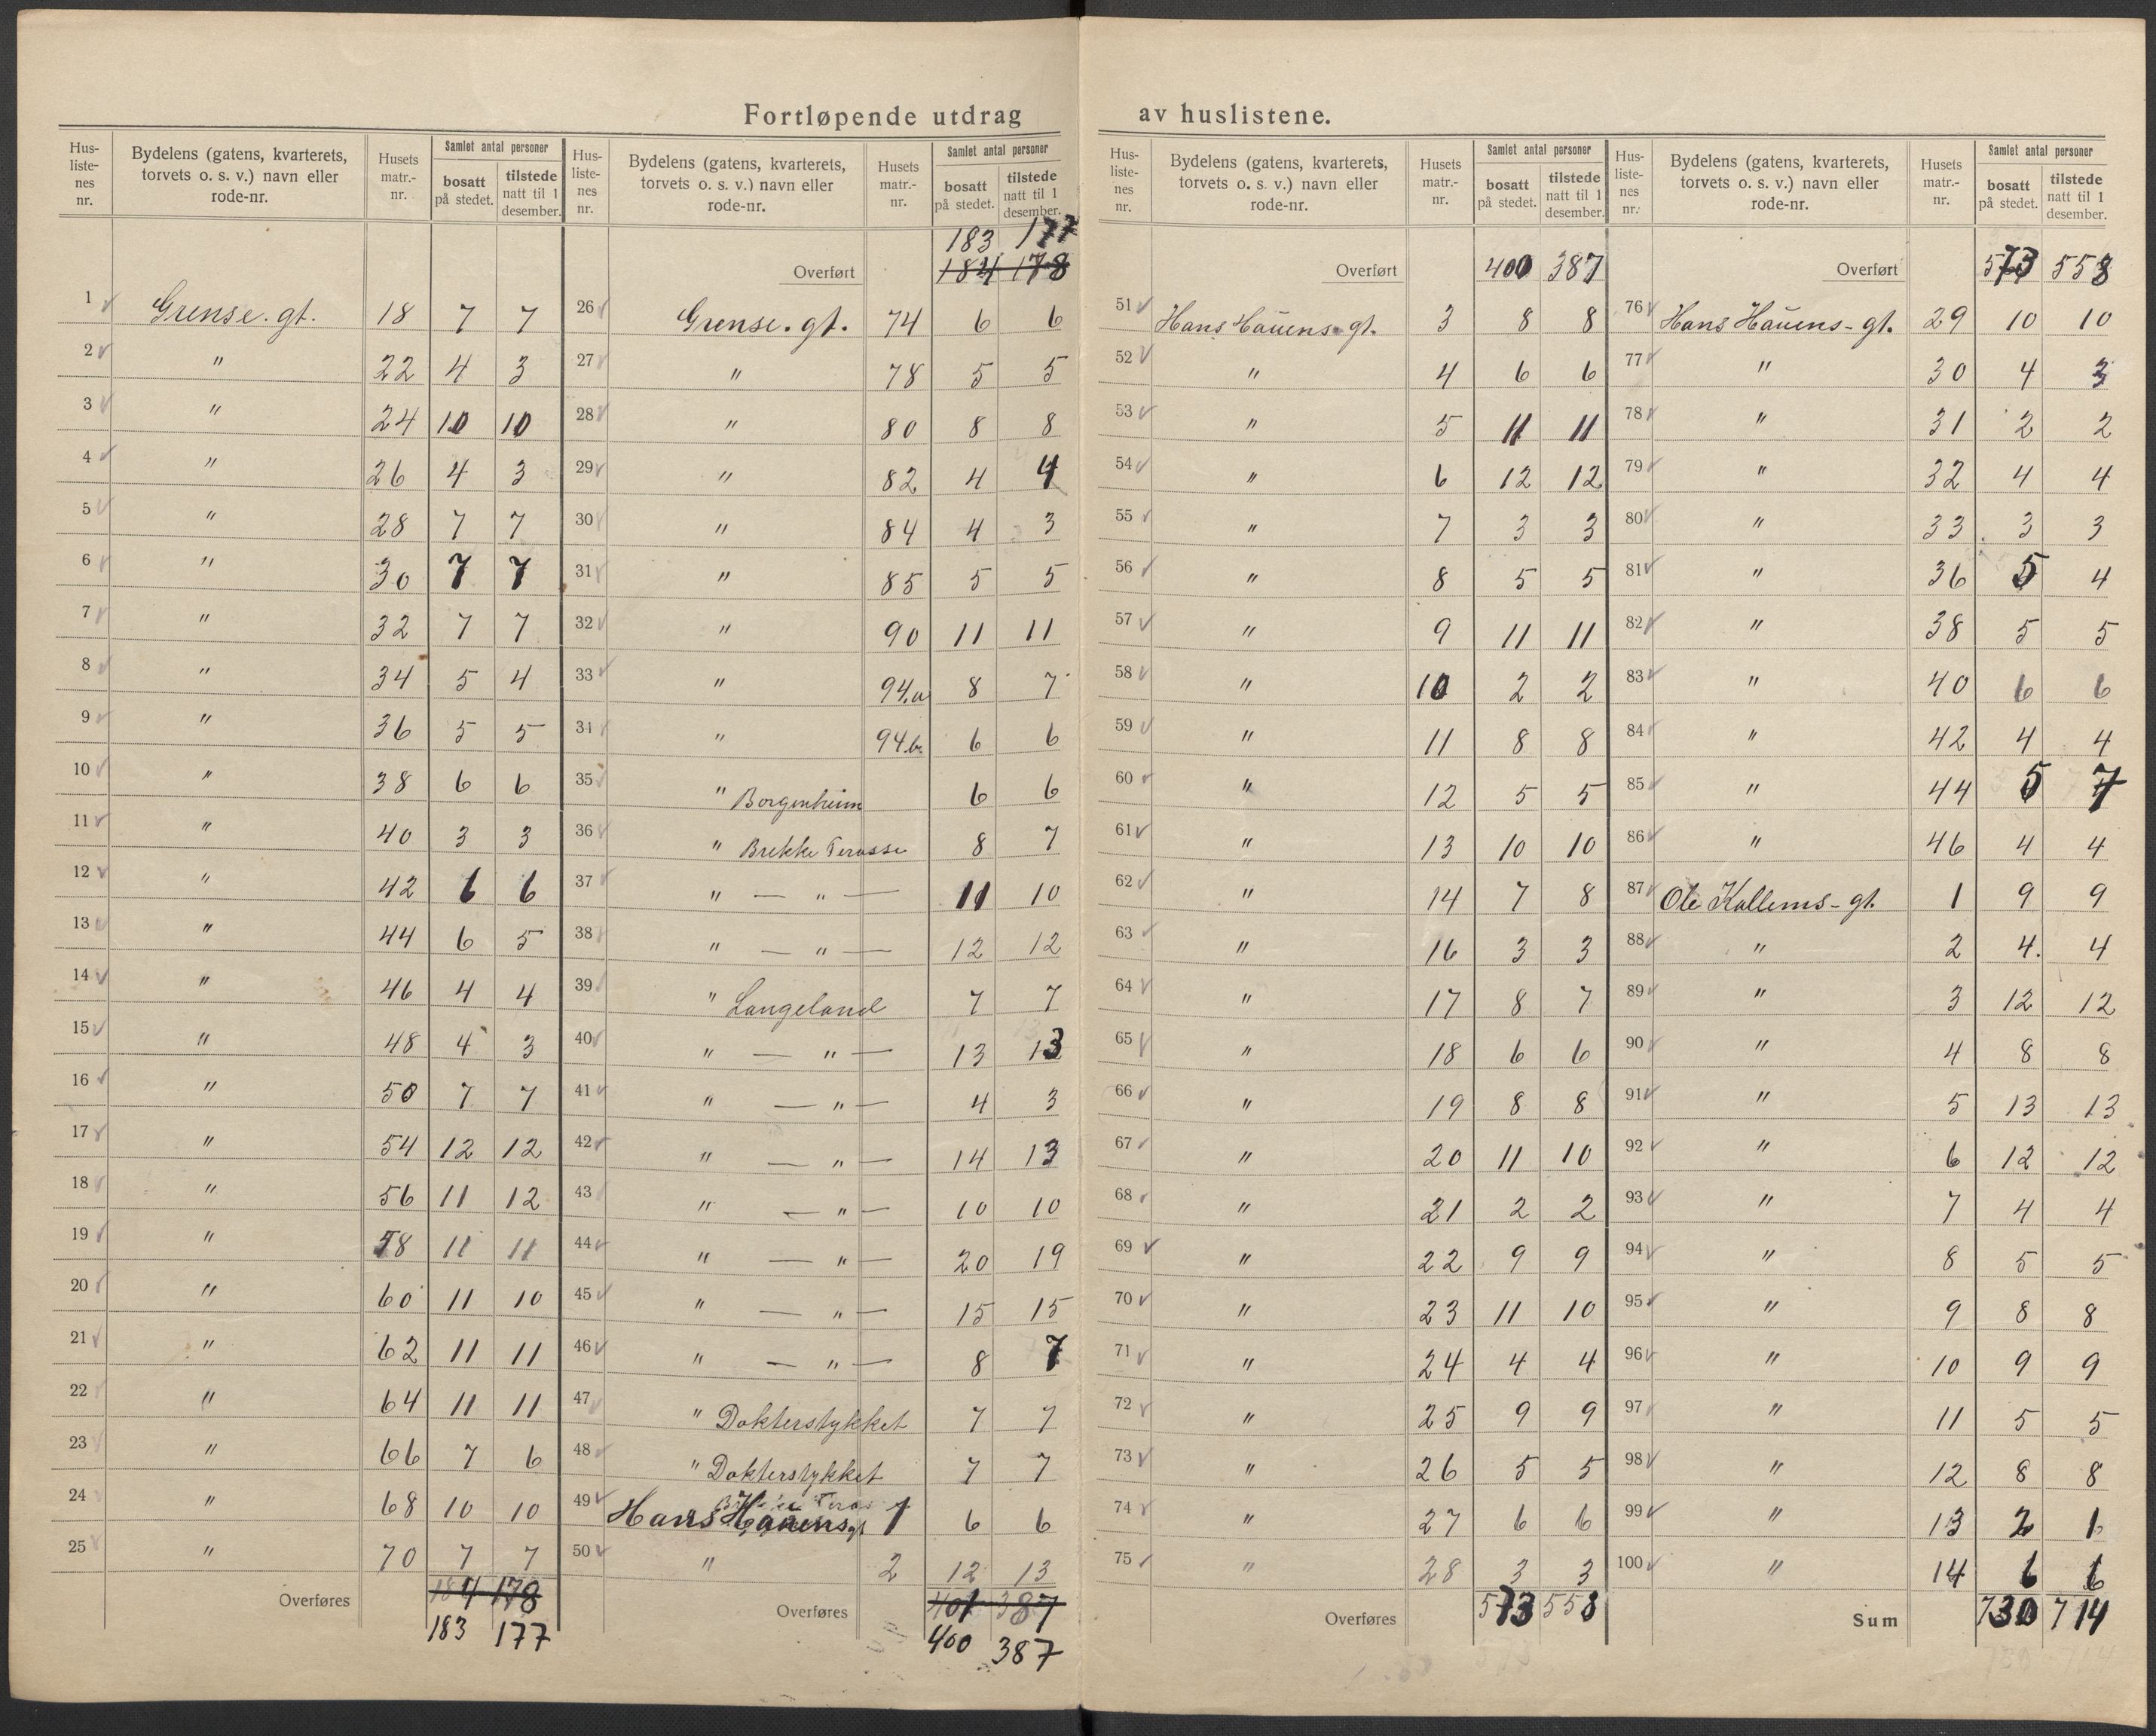 Fortløpende utdrag av huslistene.
Hus-liste-nes nr. | Bydelens (gatens, kvarterets, torvets o. s. v.) navn eller rode-nr. | Husets matr.-nr. | Samlet antal personer | bosatt på stedet. | tilstede natt til 1 desember.
1 Grense. gt. 18 7 7
2 " 22 4 3
3 " 24 10 10
4 " 26 4 3
5 " 28 7 7
6 " 30 7 7
7 " 32 7 7
8 " 34 5 4
9 " 36 5 5
10 " 38 6 6
11 " 40 3 3
12 " 42 6 6
13 " 44 6 5
14 " 46 4 4
15 " 48 4 3
16 " 50 7 7
17 " 54 12 12
18 " 56 11 12
19 " 58 11 11
20 " 60 11 10
21 " 62 11 11
22 " 64 11 11
23 " 66 7 6
24 " 68 10 10
25 " 70 7 7
Overføres 184 178
183 177
Hus-liste-nes nr. | Bydelens (gatens, kvarterets, torvets o. s. v.) navn eller rode-nr. | Husets matr.-nr. | Samlet antal personer | bosatt på stedet. | tilstede natt til 1 desember.
183 177
Overført 184 178
26 Grense. gt. 74 6 6
27 " 78 5 5
28 " 80 8 8
29 " 82 4 4
30 " 84 4 3
31 " 85 5 5
32 " 90 11 11
33 " 94.a 8 7
34 " 94.b. 6 6
35 " Borgenheim 6 6
36 " Brekke Terasse 8 7
37 " — " — 11 10
38 " — " — 12 12
39 " Langeland 7 7
40 " — " — 13 13
41 " — " — 4 3
42 " — " — 14 13
43 " — " — 10 10
44 " — " — 20 19
45 " — " — 15 15
46 " — " — 8 7
47 " Dokterstykket 7 7
48 " Dokterstykket 7 7
49 Hans Hauensgt 1 6 6
50 " 2 12 13
Overføres 401 387
400 387
Hus-liste-nes nr. | Bydelens (gatens, kvarterets, torvets o. s. v.) navn eller rode-nr. | Husets matr.-nr. | Samlet antal personer | bosatt på stedet. | tilstede natt til 1 desember.
Overført 400 387
51 Hans Hauens-gt. 3 8 8
52 " 4 6 6
53 " 5 11 11
54 " 6 12 12
55 " 7 3 3
56 " 8 5 5
57 " 9 11 11
58 " 10 2 2
59 " 11 8 8
60 " 12 5 5
61 " 13 10 10
62 " 14 7 8
63 " 16 3 3
64 " 17 8 7
65 " 18 6 6
66 " 19 8 8
67 " 20 11 10
68 " 21 2 2
69 " 22 9 9
70 " 23 11 10
71 " 24 4 4
72 " 25 9 9
73 " 26 5 5
74 " 27 6 6
75 " 28 3 3
Overføres 573 558
Hus-liste-nes nr. | Bydelens (gatens, kvarterets, torvets o. s. v.) navn eller rode-nr. | Husets matr.-nr. | Samlet antal personer | bosatt på stedet. | tilstede natt til 1 desember.
Overført 573 558
76 Hans Hauens-gt. 29 10 10
77 " 30 4 3
78 " 31 2 2
79 " 32 4 4
80 " 33 3 3
81 " 36 5 4
82 " 38 5 5
83 " 40 6 6
84 " 42 4 4
85 " 44 5 7
86 " 46 4 4
87 Ole Kallems-gt. 1 9 9
88 " 2 4. 4
89 " 3 12 12
90 " 4 8 8
91 " 5 13 13
92 " 6 12 12
93 " 7 4 4
94 " 8 5 5
95 " 9 8 8
96 " 10 9 9
97 " 11 5 5
98 " 12 8 8
99 " 13 2 1
100 " 14 6 6
Sum 730 714